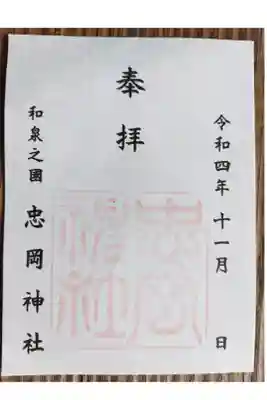 令和四年十一月 日
奉拝
和泉之國 忠岡神社
忠岡神社